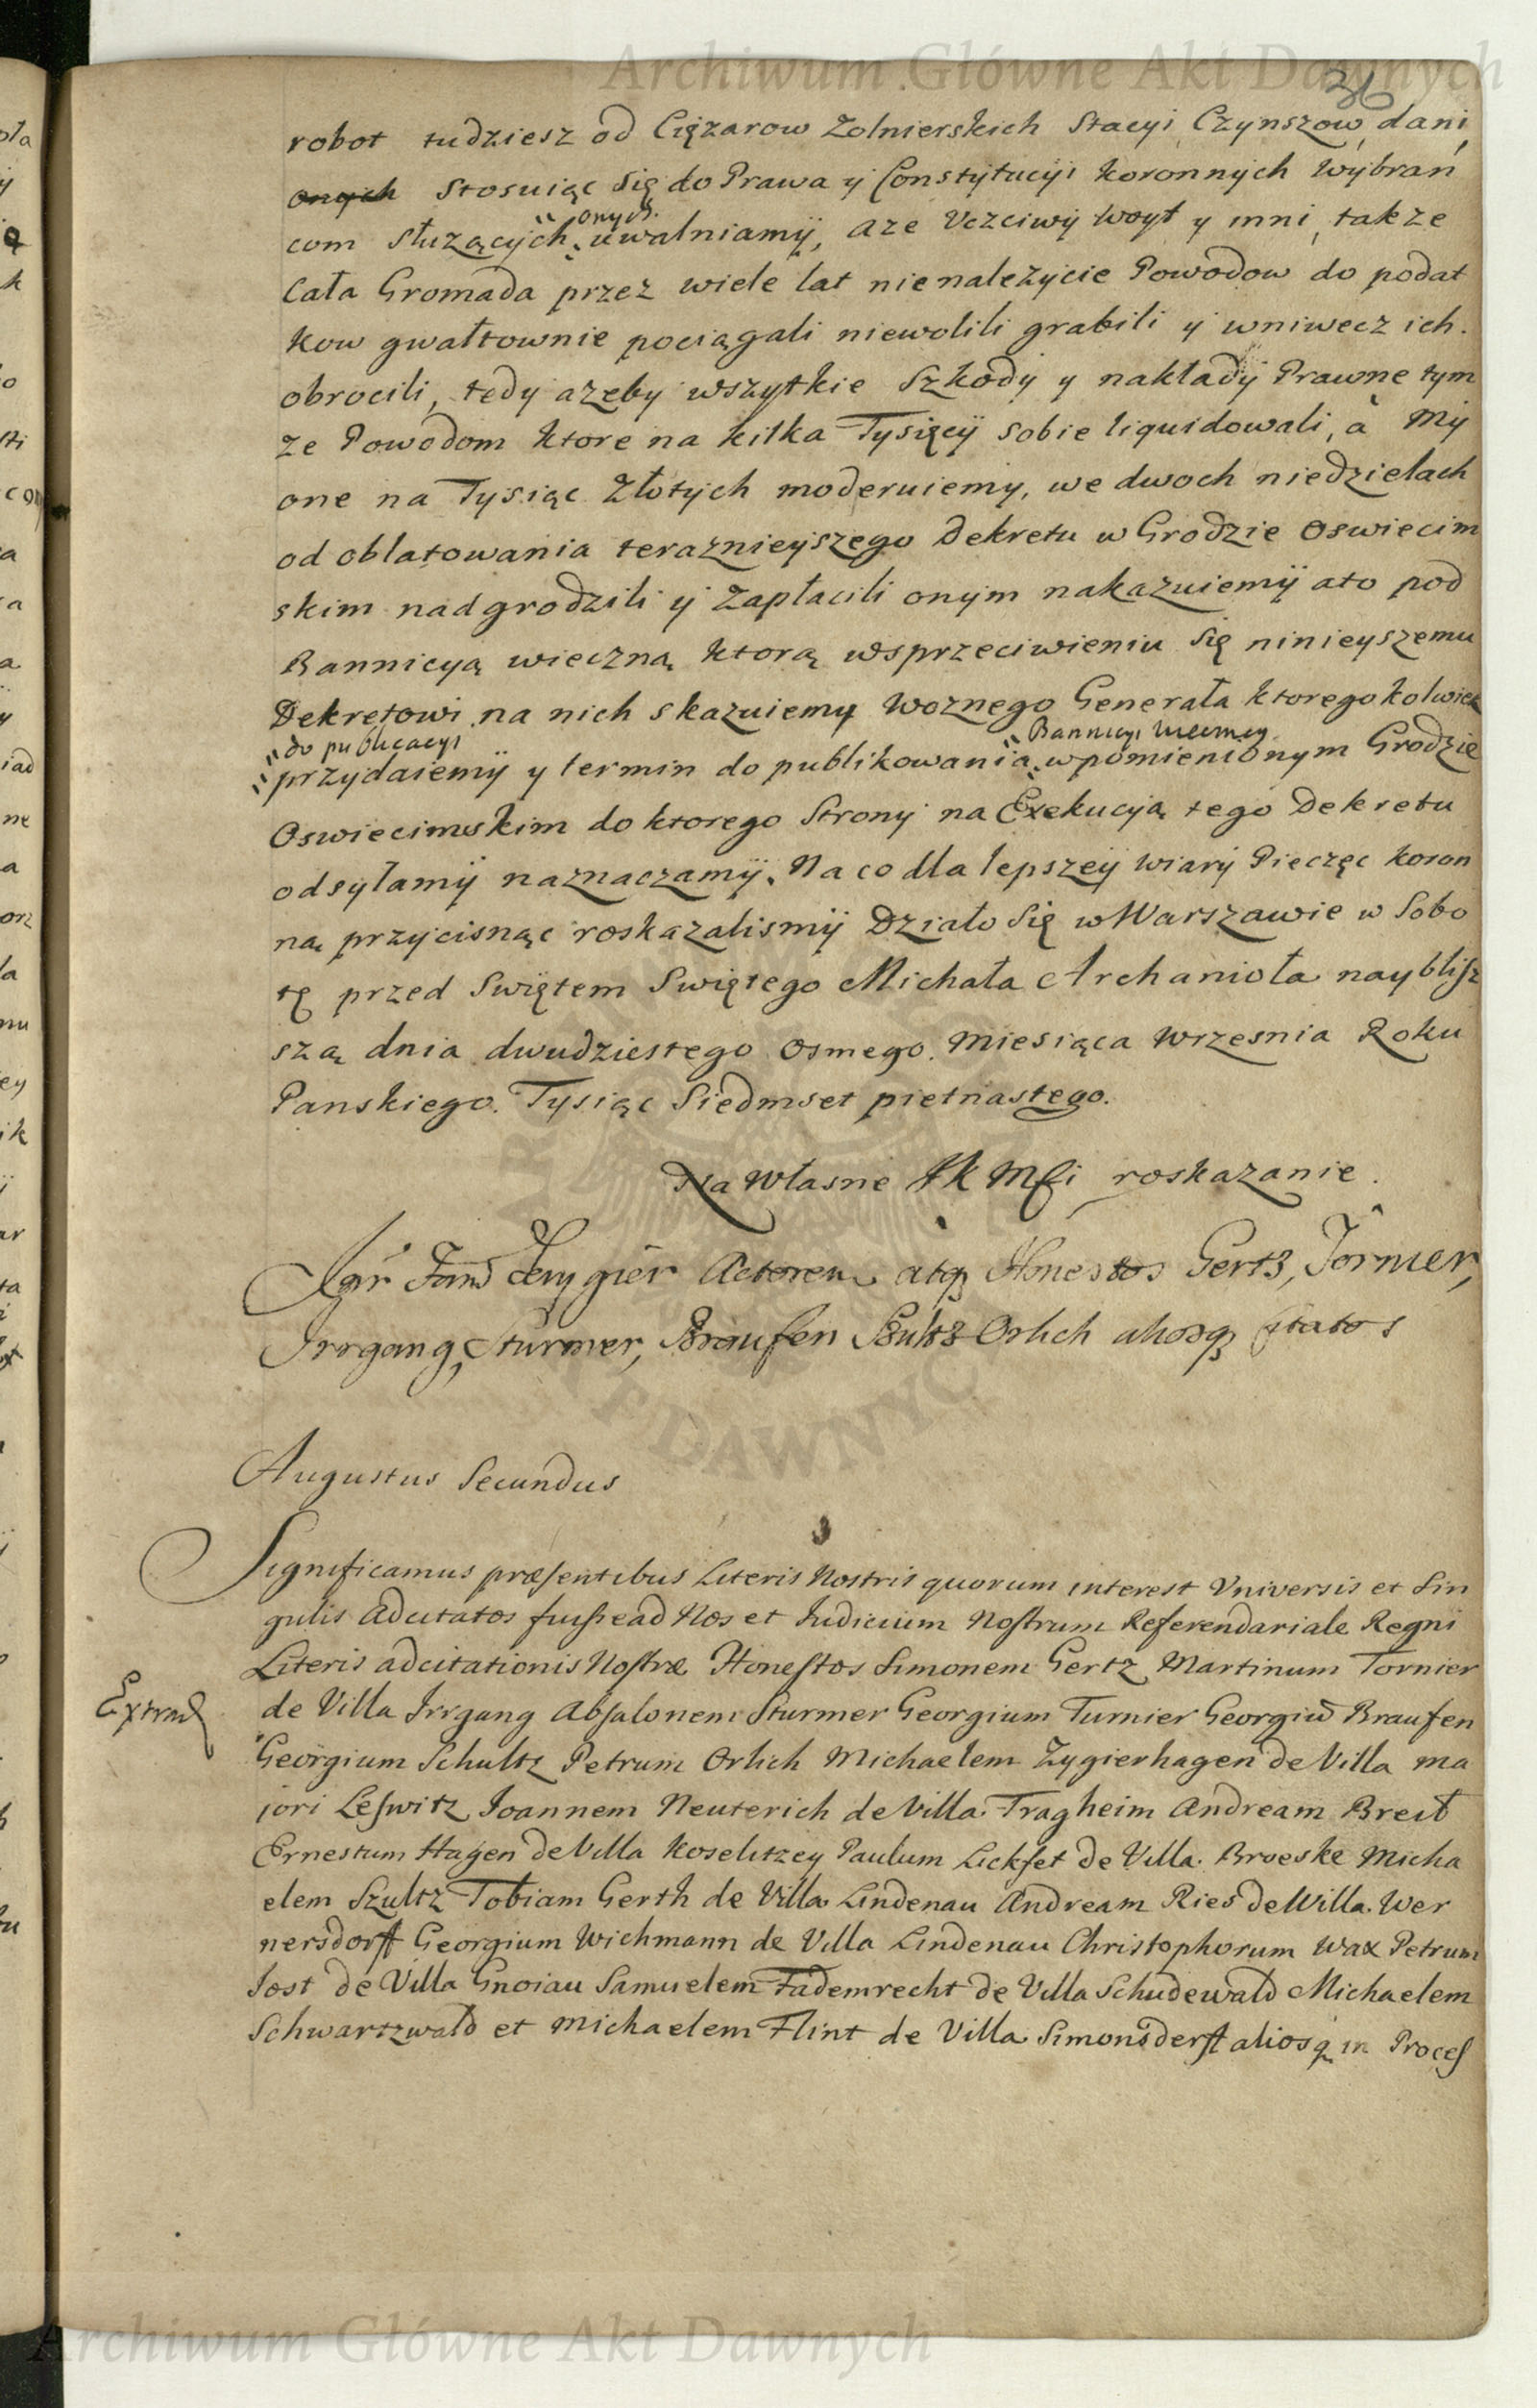 Archiwum Główne Akt Dawnych
36
robot tudziesz od Cięzarow Zolnierskich Stacyi Czynszow, dani,
onych stosuiąc się do Prawa y Constytucyi koronnych Wybran
com słuzących onych uwalniamy, aze Uczciwy Woyt y inni, takze
Cała Gromada przez wiele lat nienalezycie Powodow do podat
kow gwałtownie pociągali niewolili grabili y wniwecz ich.
obrocili, tedy azeby wszytkie Szkody y nakłady Prawne tym
ze Powodom ktore na kilka Tysięcy sobie liquidowali, à My
one na Tysiąc Złotych moderuiemy, we dwoch niedzielach
od oblatowania teraznieyszego Dekretu w Grodzie Oswiecim
skim nadgrodzili y Zapłacili onym nakazuiemy ato pod
Bannicyą wieczną ktorą wsprzeciwieniu się ninieyszemu
Dekretowi na nich skazuiemy Woznego Generała ktoregokolwiek
do publicacyi
Bannicyi wieczney
przydaiemy y termin do publikowania wpomienionym Grodzie
Oswiecimskim do ktorego Strony na Exekucyą tego Dekretu
odsyłamy naznaczamy. Na co dla lepszey wiary Pieczęc koron
ną przycisnąc roskazalismy Działo Się w Warszawie w Sobo
tę przed Swiętem Swiętego Michała Archanioła naybliſz
szą dnia dwudziestego osmego. Miesiąca Wrzesnia Roku
Panskiego. Tysiąc Siedmset pietnastego.
Na własne JK Mſci roskazanie.
Actorem atq Honestos Gertz, Tornier,
Irrgang, Sturmer, Braufen Szultz Orlich aliosq citatos
Augustus Secundus
Significamus præsentibus Literis Nostris quorum interest Universis et Sin
gulis Adcitatos fuiſse ad Nos et Iudicium Noſtrum Referendariale Regni
Literis adcitationis Noſtræ Honeſtos Simonem Gertz Martinum Tornier
Extrad
de Villa Irrgang Abſalonem Sturmer Georgium Turnier Georgiū Braufen
Georgium Schultz Petrum Orlich Michaelem Zygierhagen de Villa ma
jori Leſwitz Joannem Neuterich de Villa Tragheim Andream Breit
Ernestum Hagen de Villa Koselitzey Paulum Lickfet de Villa Broeske Micha
elem Szultz Tobiam Gerth de Villa Lindenau Andream Ries de Villa Wer
nersdorff Georgium Wichmann de Villa Lindenau Christophorum Wax Petrum
Jost de Villa Gnoiau Samuelem Fademrecht de Villa Schudewald Michaelem
Schwartzwald et Michaelem Flint de Villa Simonsderff aliosq in Proceſ
Archiwum Główne Akt Dawnych